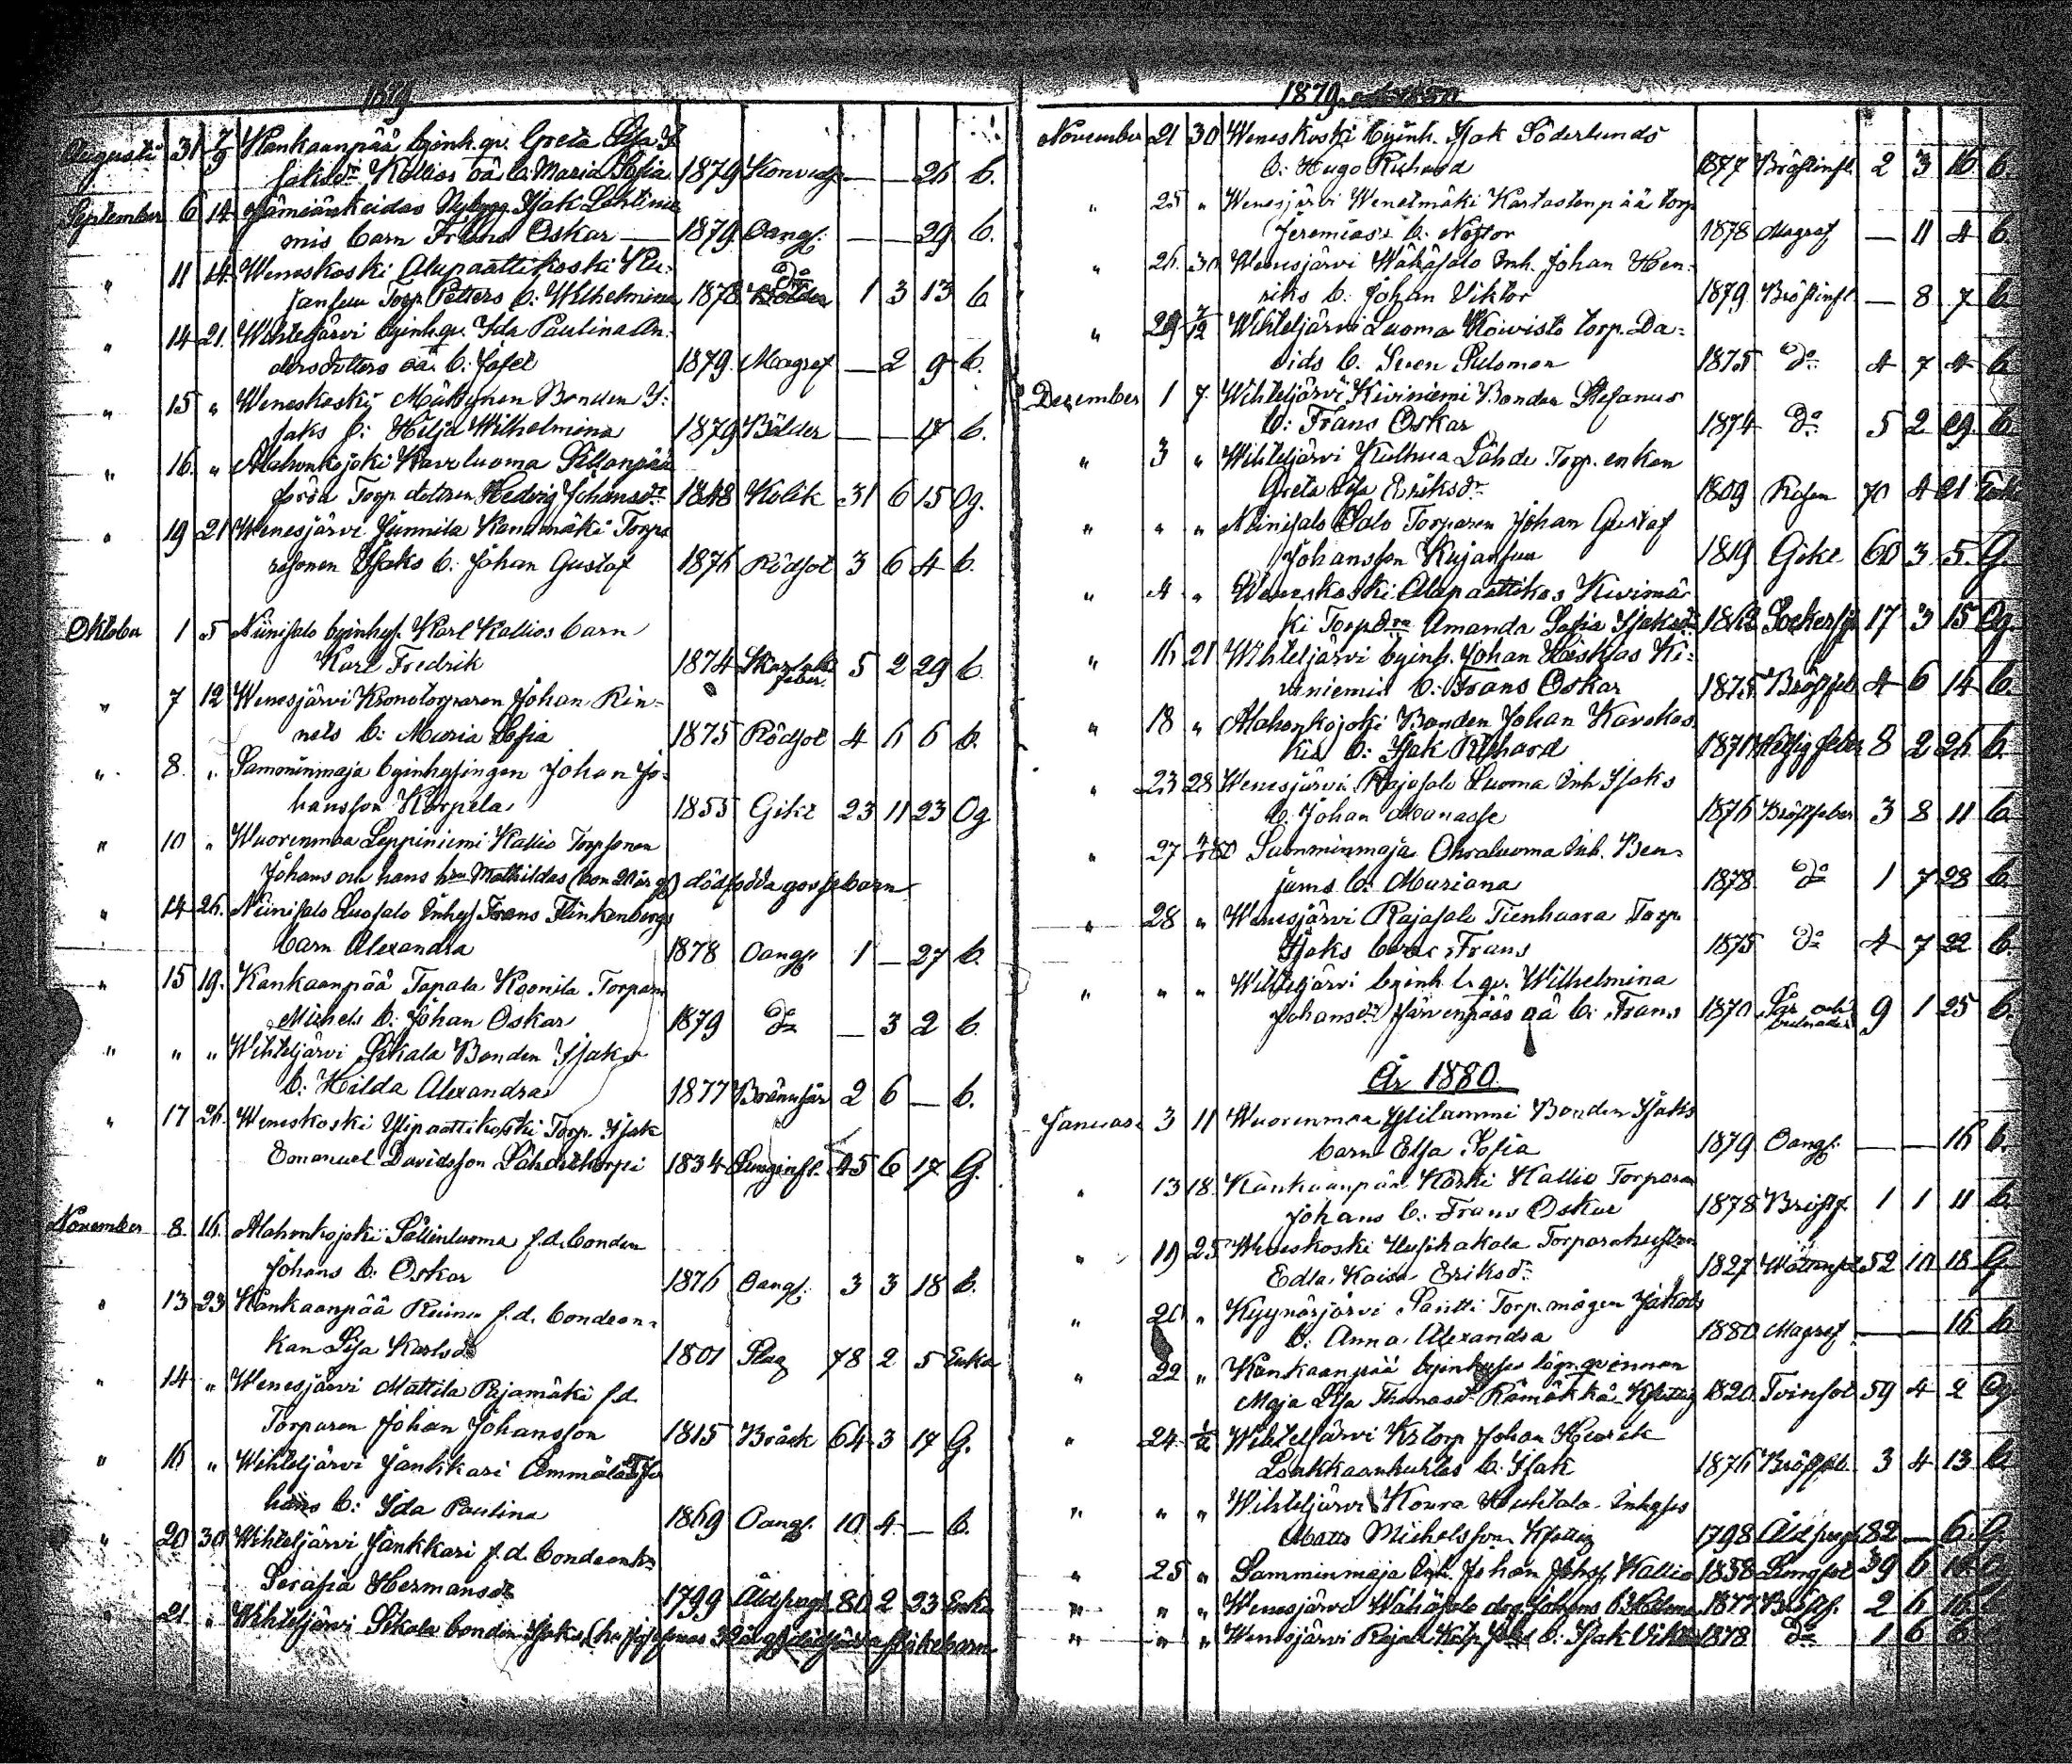 1879
Augusti 31 7/9 Kankaanpää byinh. qv. Greta Lisa
saksdr Kallios oä b. Maria Sofia 1879 Konvuls — — 26 b.
September 6 14 Jämiänkeidas Nybygg. Isak Lehtinie
mis barn Frans Oskar — 1879 Oangf: — — 29 b.
" 11 14. Weneskoski Alapaattikoski Ku-
jansuu Torp. Petters b. Wilhelmina 1878 Do 1 3 13 b
" 14 21. Wihteljärvi byinh.qv. Ida Paulina An-
dersdotters oä. b: Josef 1879. Magref — 2 9 b.
" 15 " Weneskoski Mäkynen Bonden I-
saks b: Hilja Wilhelmina 1879 Bölder — — 17 b.
" 16. " Alahonkajoki Karvluoma Sillanpää
förra Torp. dottren Hedvig Johansdr 1848 Kolik 31 6 15 Og.
" 19 21 Wenesjärvi Junnila Kanamäki Torpa
resonen Isaks b. Johan Gustaf 1876 Rödsot 3 6 4 b.
Oktober 1 5 Niinisalo byinhys. Karl Kallios barn
Karl Fredrik 1874 Skarlak feber. 5 2 29 b.
" 7 12 Wenesjärvi Kronotorparen Johan Rin-
nets b: Maria Sofia 1875 Rödsot 4 6 6 b.
" 8. " Samoninmaja byinhysingen Johan Jo-
hansson Korpela 1855 Gikt 23 11 23 Og
" 10 " Wuorenmaa Leppiniemi Kallio Torpsonen
Johans och hans hru Mathildas (hon 21 år g) dödfödda gossebarn
" 14 26. Niinisalo Luosalo Inhys Frans Flinkenbergs
barn Alexandra 1878 Oangf. 1 — 27 b.
" 15 19. Kankaanpää Tapala Koomila Torparn
Michels b: Johan Oskar 1879 Do — 3 2 b.
" " " Wihteljärvi Sikala Bonden Isaks
b: Hilda Alexandra 1877 Brännsår 2 6 — b.
" 17 26. Weneskoski Ylipaattikoski Torp. Isak
Emanuel Davidsson Lähdekorpi 1834 Lunginfl. 45 6 17 G.
November 8. 16. Alahonkajoki Sällinluoma f.d. bonden
Johans b: Oskar 1876 Oangf: 3 3 18 b.
" 13 23 Kankaanpää Reima f.d. bondeen-
kan Lisa Karlsdr 1801 Slag 78 2 5 Enka
" 14 " Wenesjärvi Mattila Pajamäki f.d.
Torparen Johan Johansson 1815 Bråck 64 3 17 G.
" 16 " Wihteljärvi Jankkari Ämmälä Jo
hans b: Ida Paulina 1869 Oangf. 10 4 — b.
" 20 30 Wihteljärvi Jankkari f.d. bondeenk.
Serafia Hermansdr 1799 Åldpragt 80 2 23 Enka
" 21. " Wihteljärvi Sikala bonden Isaks, 39 år g) dödfödda flickebarn
1879
November 21 30 Weneskoski byinh. Isak Söderlunds
b: Hugo Richard 1877 Bröstinfl. 2 3 16 b
" 25 " Wenesjärvi Wenetmäki Kartastenpää torp
Jeremias's b: Nestor 1878 Magref — 11 4 b.
" 26. 30 Wenesjärvi Wähäsalo Inh. Johan Hen-
riks b. Johan Viktor 1879. Bröstinfl — 8 7 b.
" 29 7/12 Wihteljärvi Luoma Koivisto torp. Da-
vids b. Sven Salomon 1875 Do 4 7 4 b
December 1 7. Wihteljärvi Kiviniemi Bonden Stefanus
b: Frans Oskar 1874 Do 5 2 29. b
" 3 " Wihteljärvi Kulhua Lähde Torp. enkan
Greta Lisa Eriksdr 1809 Rosen 70 4 21 Enka
" " " Niinisalo Salo Torparen Johan Gustaf
Johansson Kujansuu 1819 Gikt 60 3 5. G.
" 4 " Weneskoski Alapaattikos Kivimä
ki Torpdrn Amanda Sofia Isaksdr 1862 Sockersj 17 3 15 Og.
" 16 21 Wihteljärvi byinh. Johan Ki-
viniemis b: Frans Oskar 1875 Bröstfeb 4 6 14 b.
" 18 " Alahonkajoki Bonden Johan Karokos
kis b: Isak Richard 1871 Hetsig feber 8 2 26 b.
" 23 28 Wenesjärvi Rajasalo Luoma Inh Isaks
b. Johan Manasse 1876 Bröstfeber 3 8 11 b
" 27 Samminmaja Ohraluoma Inh. Ben-
jams b: Mariana 1878. Do 1 7 28 b.
" 28 " Wenesjärvi Rajasalo Tienhaara Torp
Isaks barn Frans 1875 Do 4 7 22 b.
" " " Wihteljärvi byinh l. qv. Wilhelmina
Johansdr Järvenpääs oä b: Frans 1870 Sår och 9 1 25 b.
År 1880.
Januari 3 11 Wuorenmaa Ylilammi Bonden Isaks
barn Elsa Sofia 1879 Oangf. — — 16 b.
" 13 18. Kankaanpää Koski Kallio Torparen
Johans b: Frans Oskar 1878 Bröstf. 1 1 11 b
" 19 25 Weneskoski Uusihakala Torparehustrun
Edla Kaisa Eriksdr 1827 Wattensot 52 10 18 G.
" 20 " Kyynärjärvi Santti Torp. mågen Jakobs
b: Anna Alexandra 1880 Magref — — 16 b
" 22 " Kankaanpää byinhyses lösa qvinnan
Maja Lisa Thomasdr Rämäkkä 1820. Tvinsot 59 4 2 Og
" 24 1/2 Wihteljärvi Krtorp Johan Henrik
Lonkkaankuhtas b. Isak 1876 Bröstfeb. 3 4 13 b
" " " Wihteljärvi Koura Huhtala Inhyses
Matts Michelsson 1798 Åldpragt 82 — 6. G
" 25 " Samminmaja Inh. Johan Johss. Kallio 1838 Lungsot 39 6 16
" " " Wenesjärvi Wähäsalo drg. Johans b. Helena 1877 Bröstf. 2 6 16.
" " " Wenesjärvi Rajala b: Isak Viktor 1878 Do 1 6 6